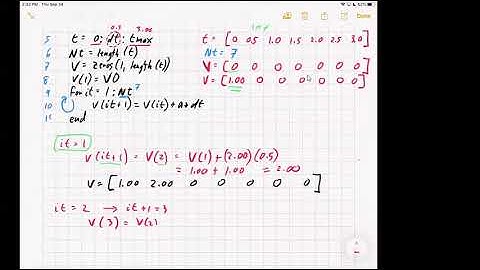 2:32 PM Thu Sep 24
0.5 3.00
5 t = 0; dt; tmax
6 Nt = length(t)
7 V = zeros(1, length(t))
8 V(1) = V0
9 for it = 1:Nt 7
10 V(it+1) = V(it) + a*dt
11 end
t = [0 0.5 1.0 1.5 2.0 2.5 3.0]
Nt = 7
V = [0 0 0 0 0 0 0]
V = [1.00 0 0 0 0 0 0]
it = 1
V(it+1) = V(2) = V(1) + (2.00)(0.5)
= 1.00 + 1.00 = 2.00
V = [1.00 2.00 0 0 0 0 0]
it = 2 → it+1 = 3
V(3) = V(2)